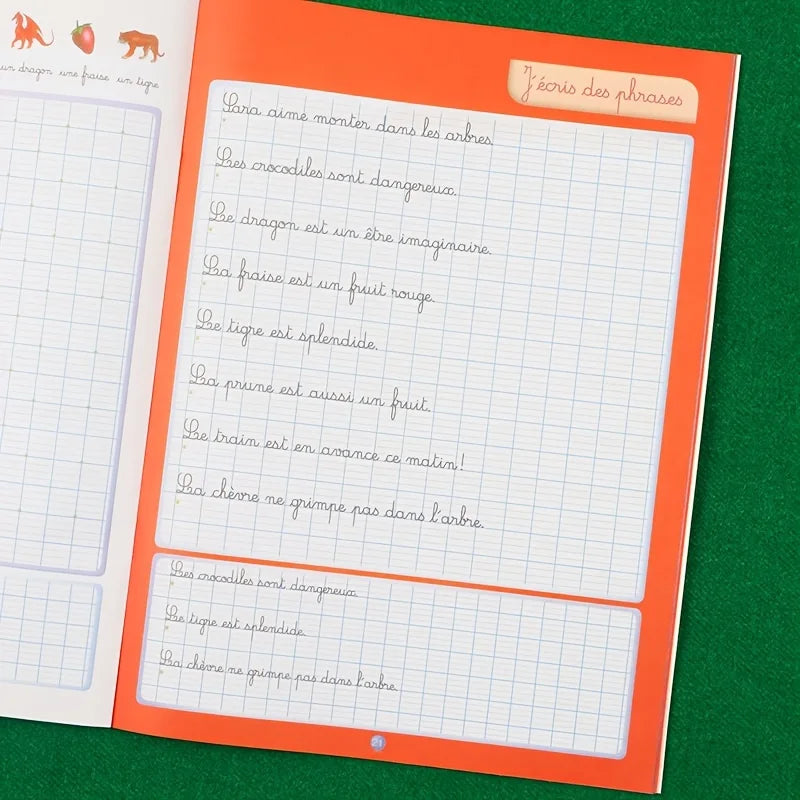 un dragon une fraise un tigre
J'écris des phrases
Sara aime monter dans les arbres.
Les crocodiles sont dangereux.
Le dragon est un être imaginaire.
La fraise est un fruit rouge.
Le tigre est splendide.
La prune est aussi un fruit.
Le train est en avance ce matin!
La chèvre ne grimpe pas dans l'arbre.
Les crocodiles sont dangereux.
Le tigre est splendide.
La chèvre ne grimpe pas dans l'arbre.
21